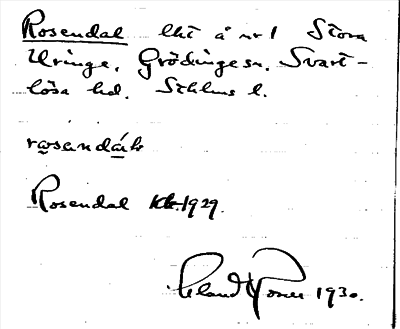 Rosendal lht å nr 1 Stora
Uringe, Grödinge sn. Svart-
lösa hd. Sthlms l.
rosendá
Rosendal 1929.
Roland 1930.